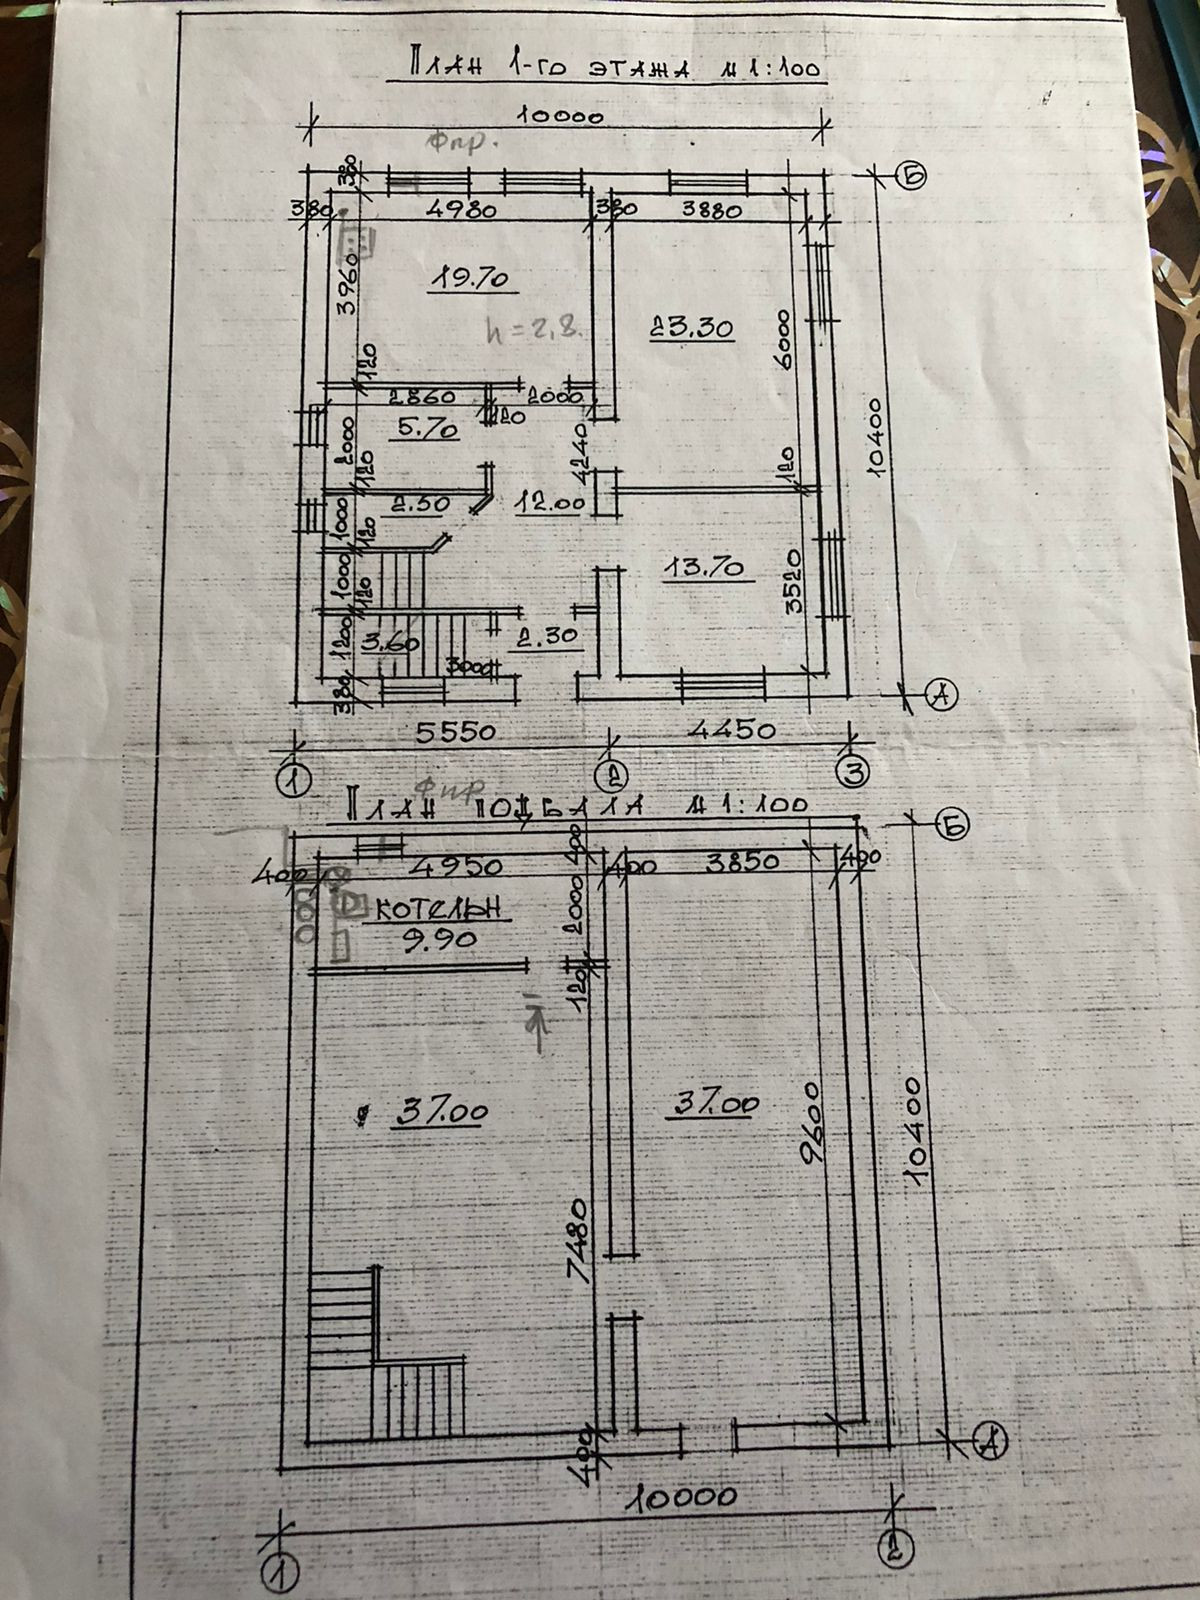 План 1-го этажа м 1:100
10000
Фпр.
Б
380
380 4980 380 3880
3960
19.70
h=2,8.
23.30
6000
120
2860 2000
5.70 120
2000
4240
10400
120
120
2.50 12.00
1000
120
1000
13.70
3520
120
1200
3.60 2.30
3000
380
А
5550 4450
1 2 3
Фпр
План подвала м 1:100
Б
400 4950 400 3850 400
400
котельн
9.90
2000
120
37.00 37.00
9600
10400
7480
400
А
10000
1 2